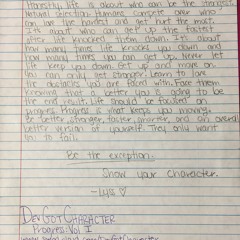 Honestly, life is about who can be the strongest.
Natural selection. Humans compete over who
can love the hardest and get hurt the most.
It's about who can get up the fastest
after life knocked them down. It's about
how many times life knocks you down and
how many times you can get up. Never let
life keep you down. Get up and move on
you can only get stronger. Learn to love
the obstacles you are faced with. Face them
knowing that a better you is going to be
the end result. Life should be focused on
progress. Progress is what keeps you moving.
Be better, stronger, faster, smarter, and an overall
better version of yourself. They only want
you to fail.
Be the exception.
Show your character.
-Luis ♡
DevGotCharacter
Progress: Vol I